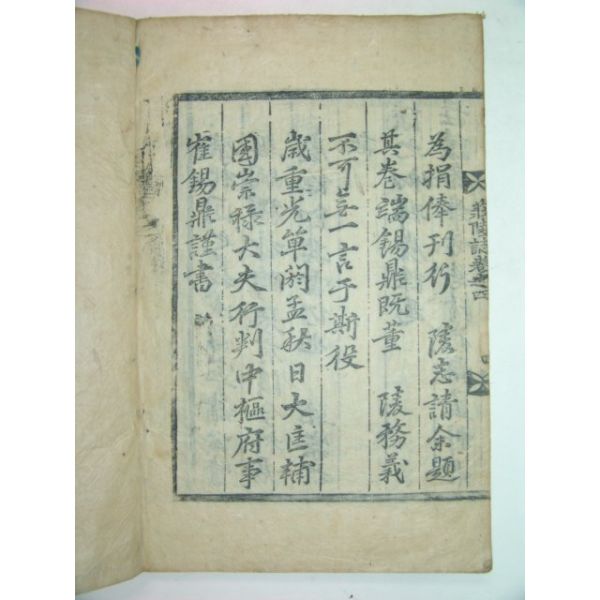 莊陵誌卷之四
為捐俸刊行 陵志請余題
其卷端錫鼎既董 陵務義
不可無一言于斯役
歲重光單閼孟秋日大匡輔
國崇祿大夫行判中樞府事
崔錫鼎謹書